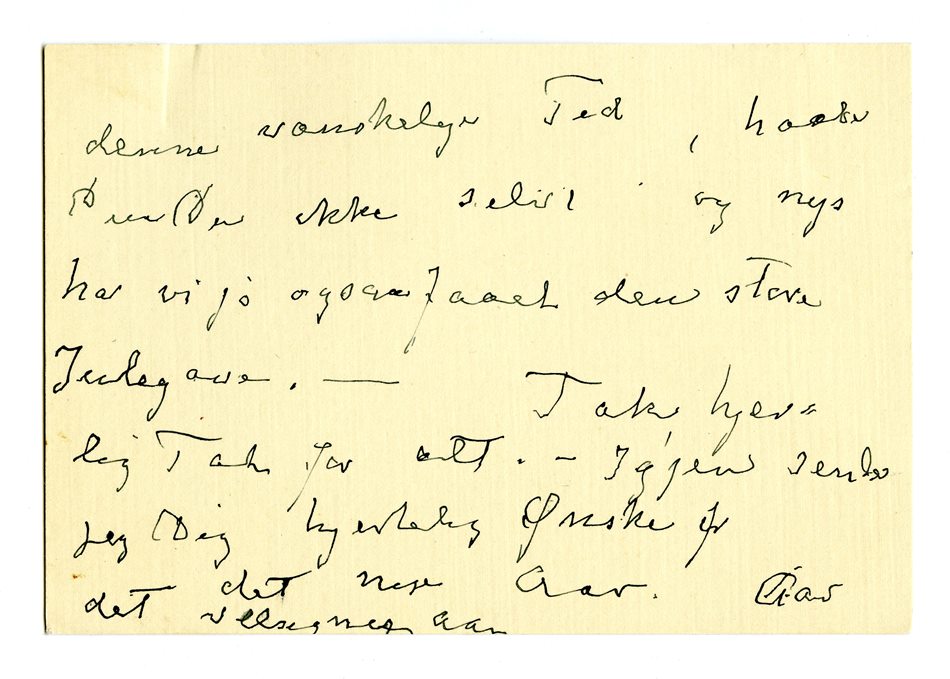 denne vanskelige Tid, haabe
Du ikke selvt og nys
har vi jo ogsaa faaet den store
Julegave. —
Tak, hjer=
lig Tak for alt. – Igjen sender
jeg Dig hjertelig Ønske for
det nye Aar.
det velsignes Aar